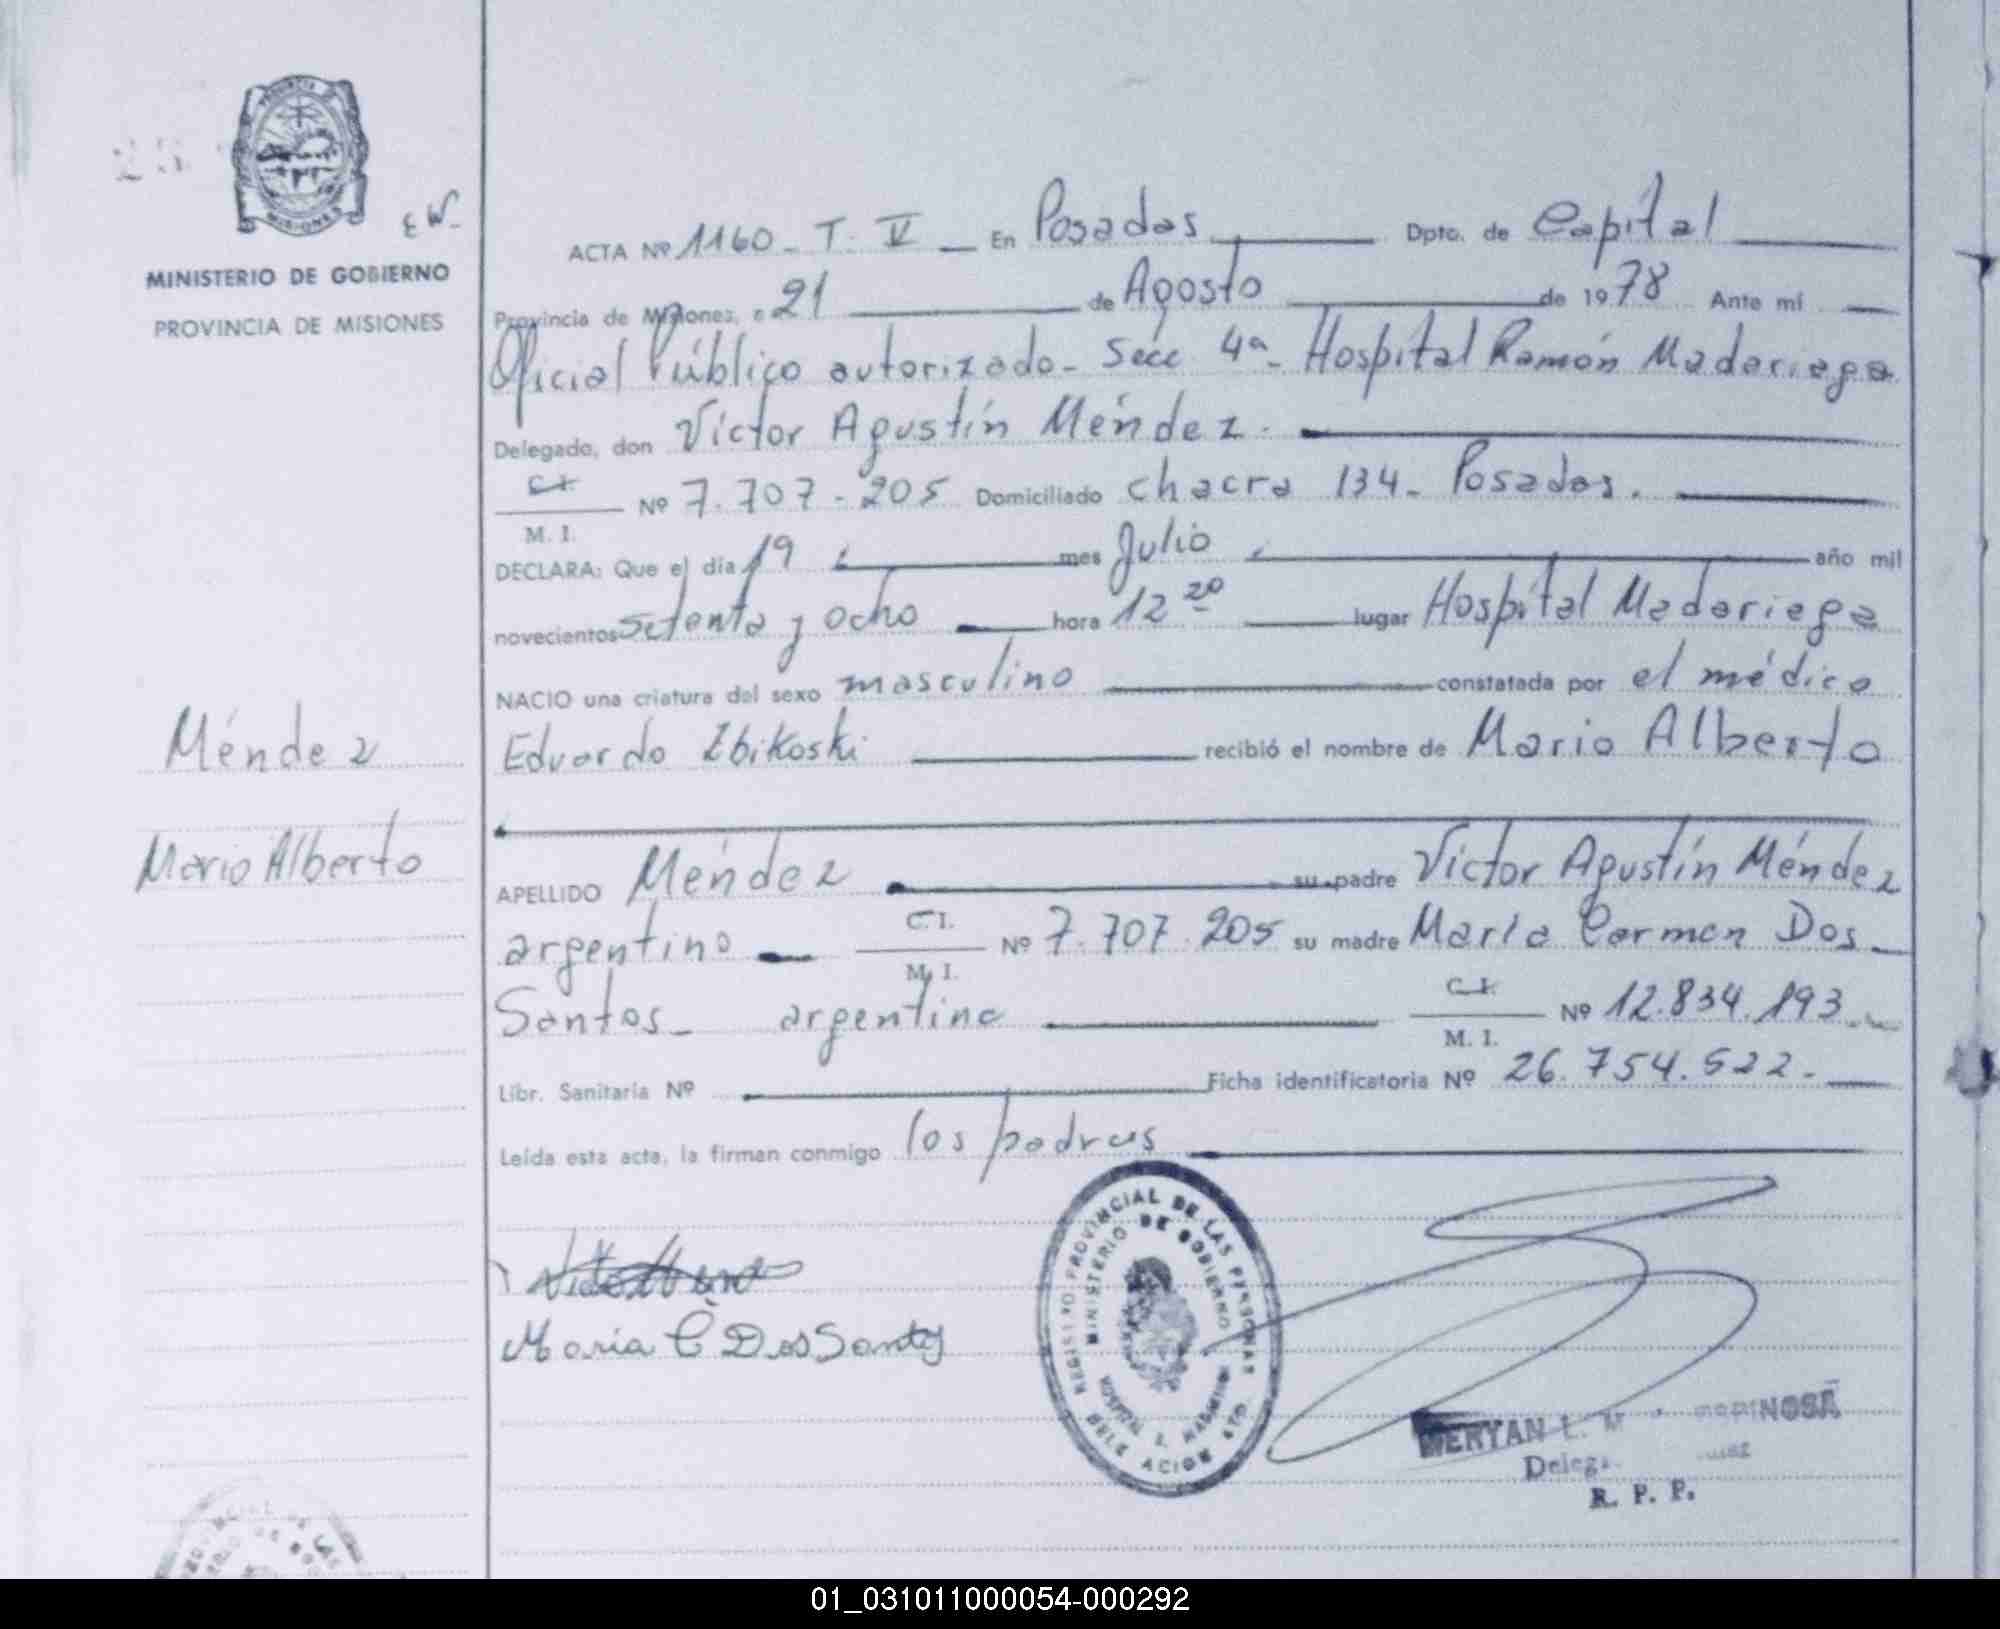 PROVINCIA DE
MISIONES
EW-
MINISTERIO DE GOBIERNO
PROVINCIA DE MISIONES
Méndez
Mario Alberto
ACTA Nº 1160 - T. V - En Posadas Dpto. de Capital
Provincia de Misiones, a 21 de Agosto de 1978 Ante mí
Oficial Público autorizado - Secc 4ª - Hospital Ramón Madariaga
Delegado, don Víctor Agustín Méndez.
C.I. / M. I. Nº 7.707.205 Domiciliado chacra 134 - Posadas.
DECLARA: Que el día 19 mes Julio año mil
novecientos setenta y ocho hora 12 20 lugar Hospital Madariaga
NACIO una criatura del sexo masculino constatada por el médico
Eduardo Zbikoski recibió el nombre de Mario Alberto
APELLIDO Méndez su padre Víctor Agustín Méndez
argentino C.I. / M. I. Nº 7.707.205 su madre María Carmen Dos
Santos - argentina C.I. / M. I. Nº 12.834.893
Libr. Sanitaria Nº Ficha identificatoria Nº 26.754.522.-
Leída esta acta, la firman conmigo los padres
María C Dos Santos
REGISTRO PROVINCIAL DE LAS PERSONAS
MINISTERIO DE GOBIERNO
HOSPITAL R. MADARIAGA
DELEGACION
MERYAN L. M
R. P. P.
01_031011000054-000292